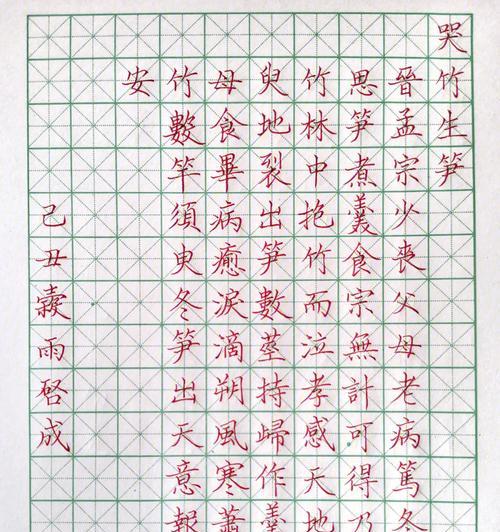 哭竹生笋
晉孟宗少喪父母老病篤冬
思笋煮羹食宗無計可得乃
竹林中抱竹而泣孝感天地
臾地裂出笋數莖持歸作羹
母食畢病癒淚滴朔風寒蕭
竹數竿須臾冬笋出天意報
安
己丑穀雨啓成